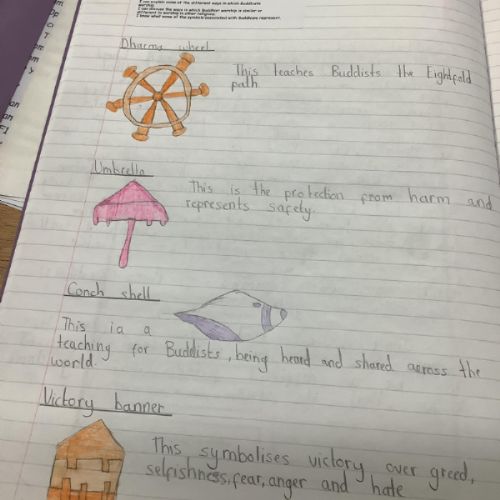 I can explain some of the different ways in which Buddhists worship.
I can discuss the ways in which Buddhist worship is similar or different to worship in other religions.
I know what some of the symbols associated with Buddhism represent.
Dharma wheel
This teaches Buddists the Eightfold
path
Umbrella
This is the protection from harm and
represents safety.
Conch shell
This is a
teaching for Buddists, being heard and shared across the
world.
Victory banner
This symbolises victory over greed,
selfishness, fear, anger and hate